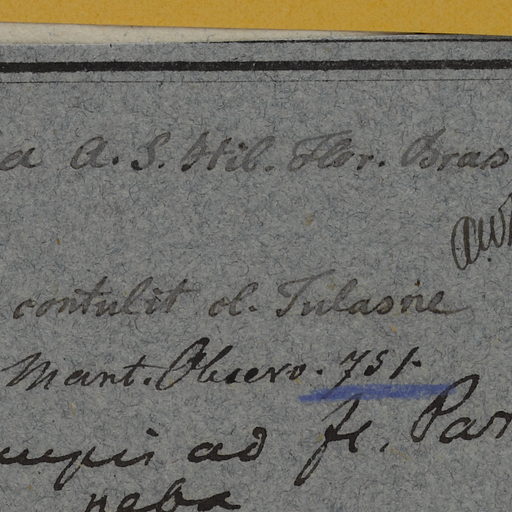 a A. S. Hil. Flor. Bras
contulit cl. Tulasne
Mart. Observ. 751.
ad fl. Par